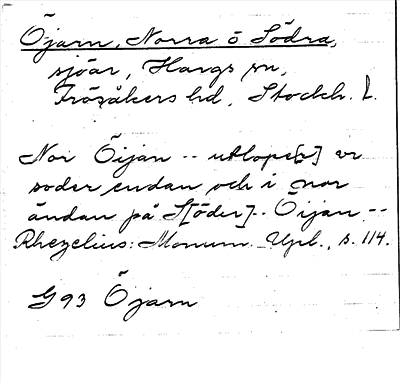 Öjarn, Norra o Södra,
sjöar, Hargs sn,
Frösåkers hd, Stockh. l.
Nor Öijan -- utlope[r] vr
soder endan och i nor
ändan på S[öder]-- Öijan --
Rhezelius: Monum. Upl., s. 114.
G 93 Öjarn